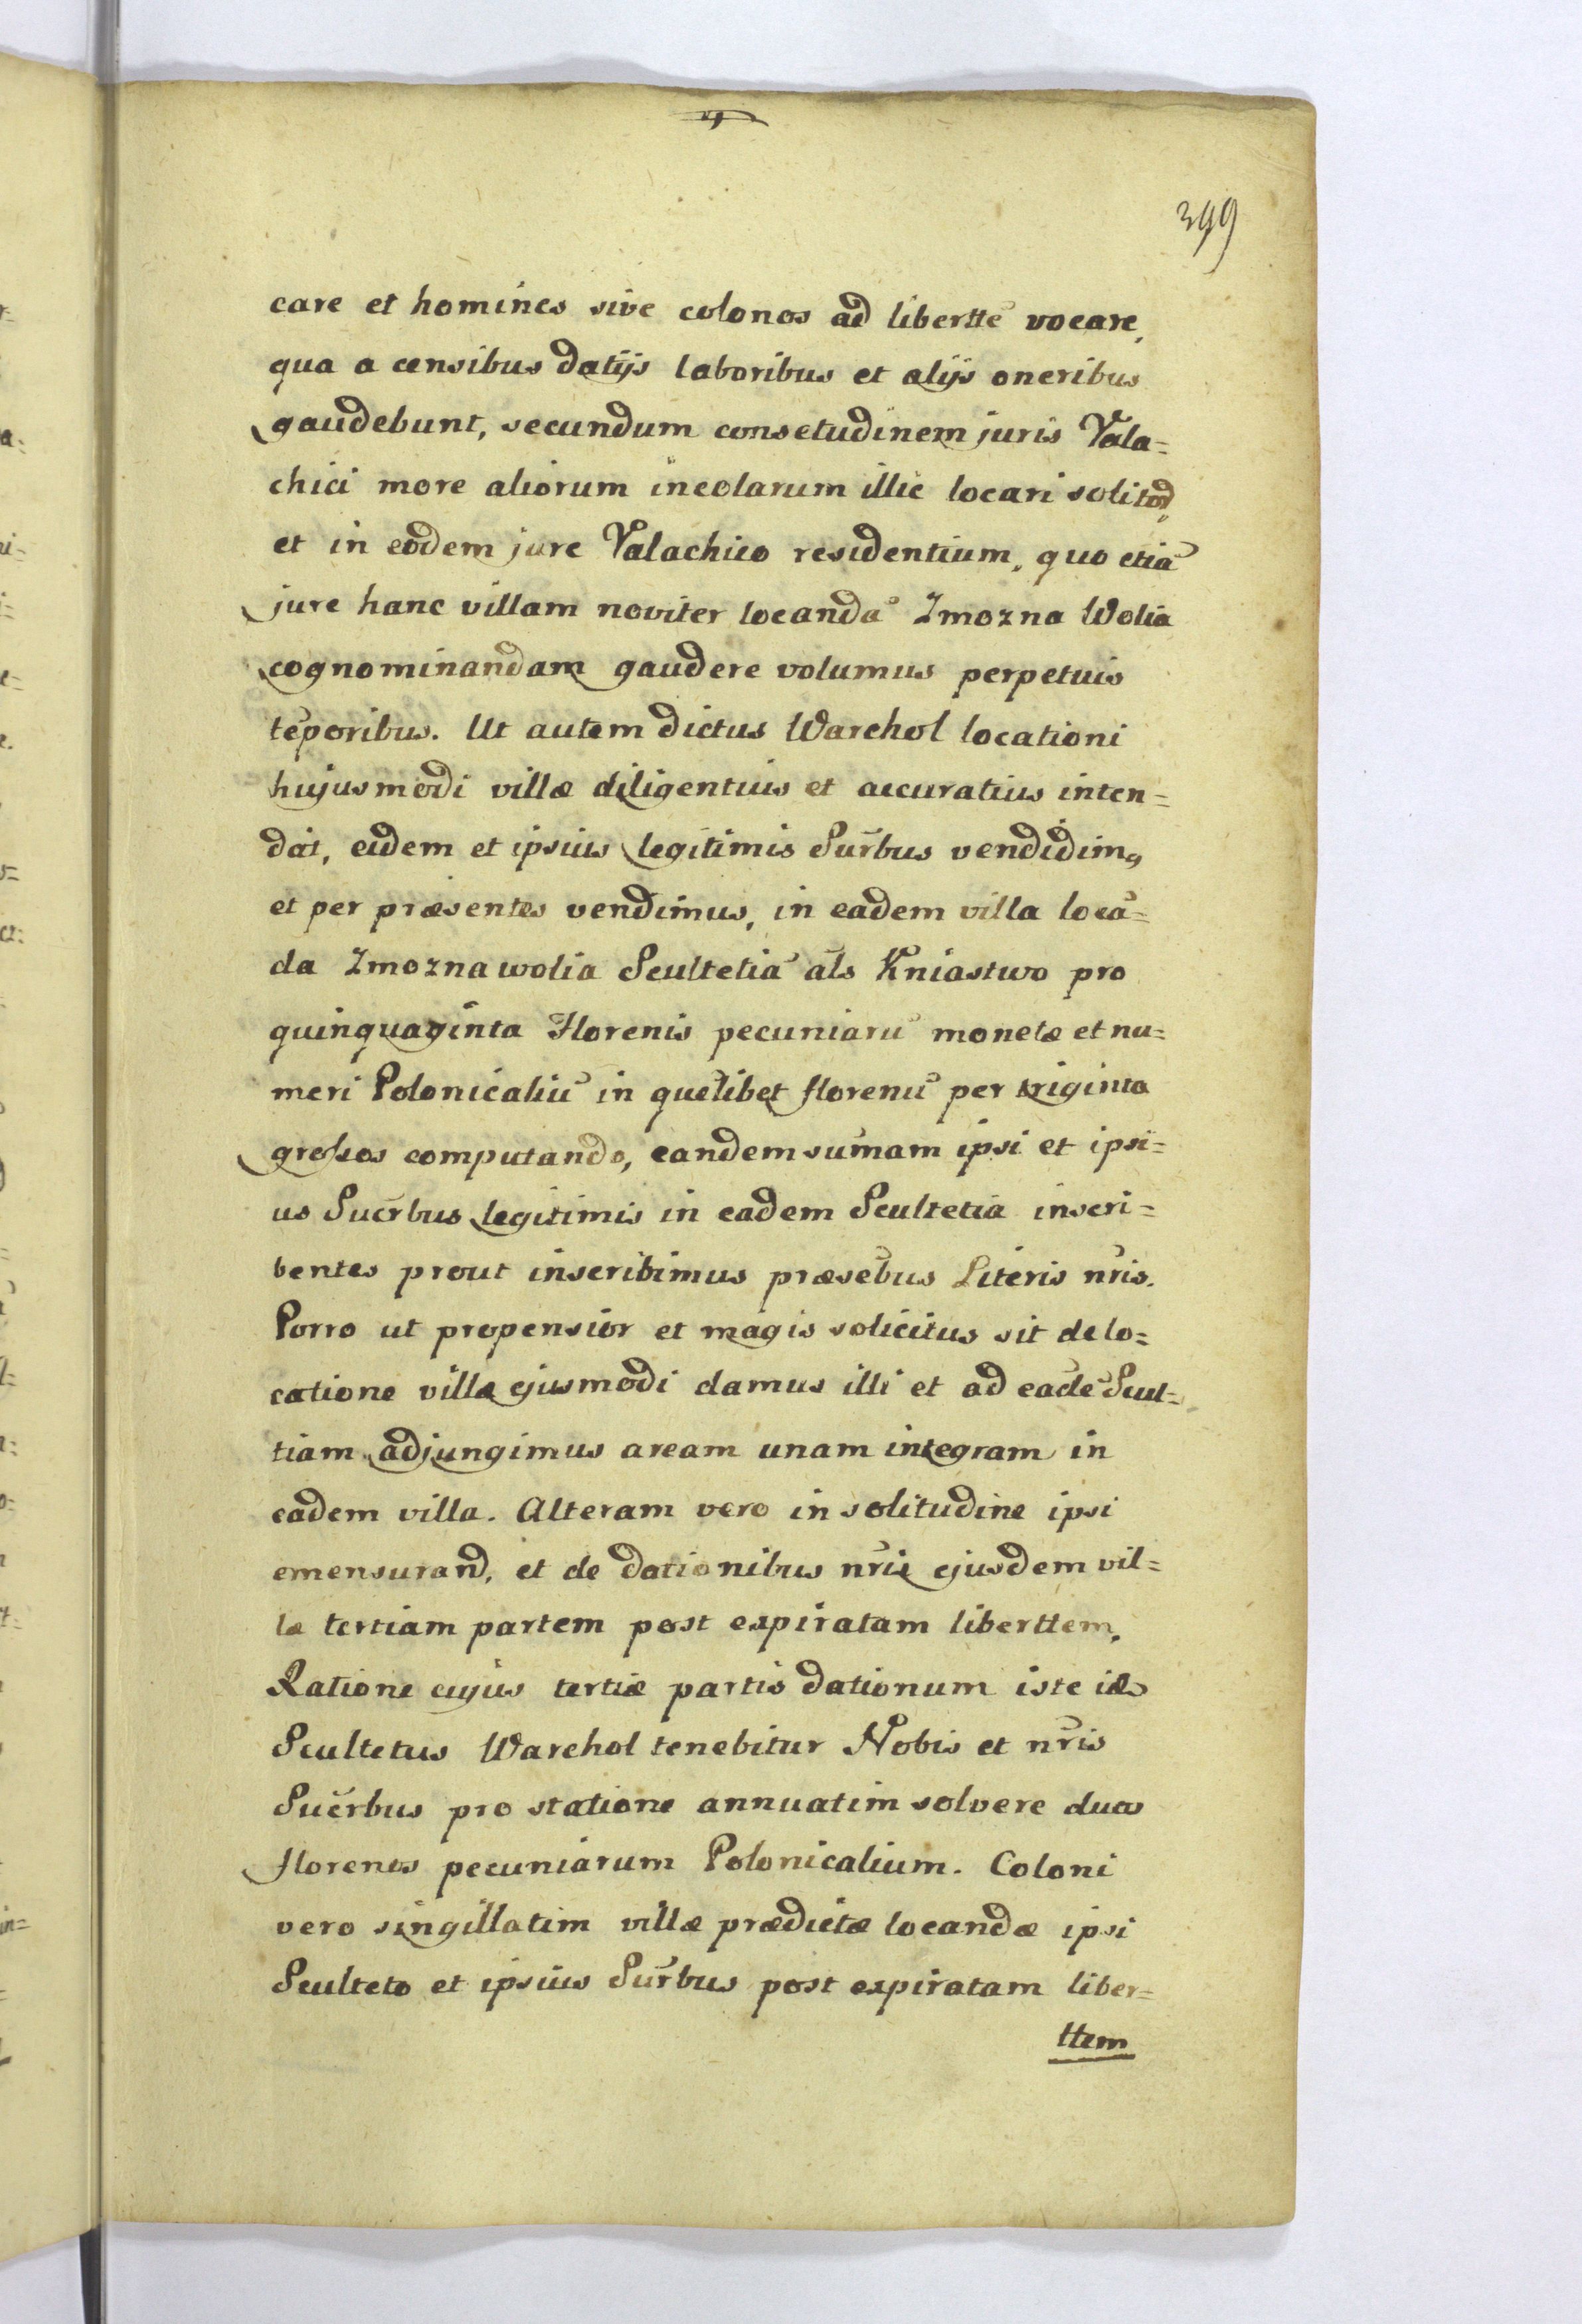 399
care et homines sive colonos ad libertte̅ vocare,
qua a censibus datijs laboribus et alijs oneribus
gaudebunt, secundum consetudinem juris Vala=
chici more aliorum incolarum illic locari solitor̅
et in eodem jure Valachico residentium, quo etia̅
jure hanc villam noviter locanda̅ Zmozna Wolia
cognominandam gaudere volumus perpetuis
te̅poribus. Ut autem dictus Warchol locationi
hujusmodi villæ diligentius et accuratius inten=
dat, eidem et ipsius legitimis Sur̅bus vendidim9
et per præsentes vendimus, in eadem villa loca̅=
da Zmozna wolia Scultetia̅ als Kniastwo pro
quinquaginta Florenis pecuniaru̅ monetæ et nu=
meri Polonicaliu̅ in que̅libet florenu̅ per triginta
grossos computando, eandem sum̅am ipsi et ipsi=
us Suc̅rbus legitimis in eadem Scultetia inscri=
bentes prout inscribimus præse̅bus Literis nr̅is.
Porro ut propensior et magis solicitus sit de lo=
catione villæ ejusmodi damus illi et ad eade̅ Scul=
tiam adjungimus aream unam integram in
eadem villa. Alteram vero in solitudine ipsi
emensurand, et de dationibus nr̅is ejusdem vil=
læ tertiam partem post expiratam liberttem.
Ratione cujus tertiæ partis dationum iste ids
Scultetus Warchol tenebitur Nobis et nr̅is
Suc̅rbus pro statione annuatim solvere duos
florenos pecuniarum Polonicalium. Coloni
vero singillatim villæ prædictæ locandæ ipsi
Sculteto et ipsius Sur̅bus post expiratam liber=
ttem